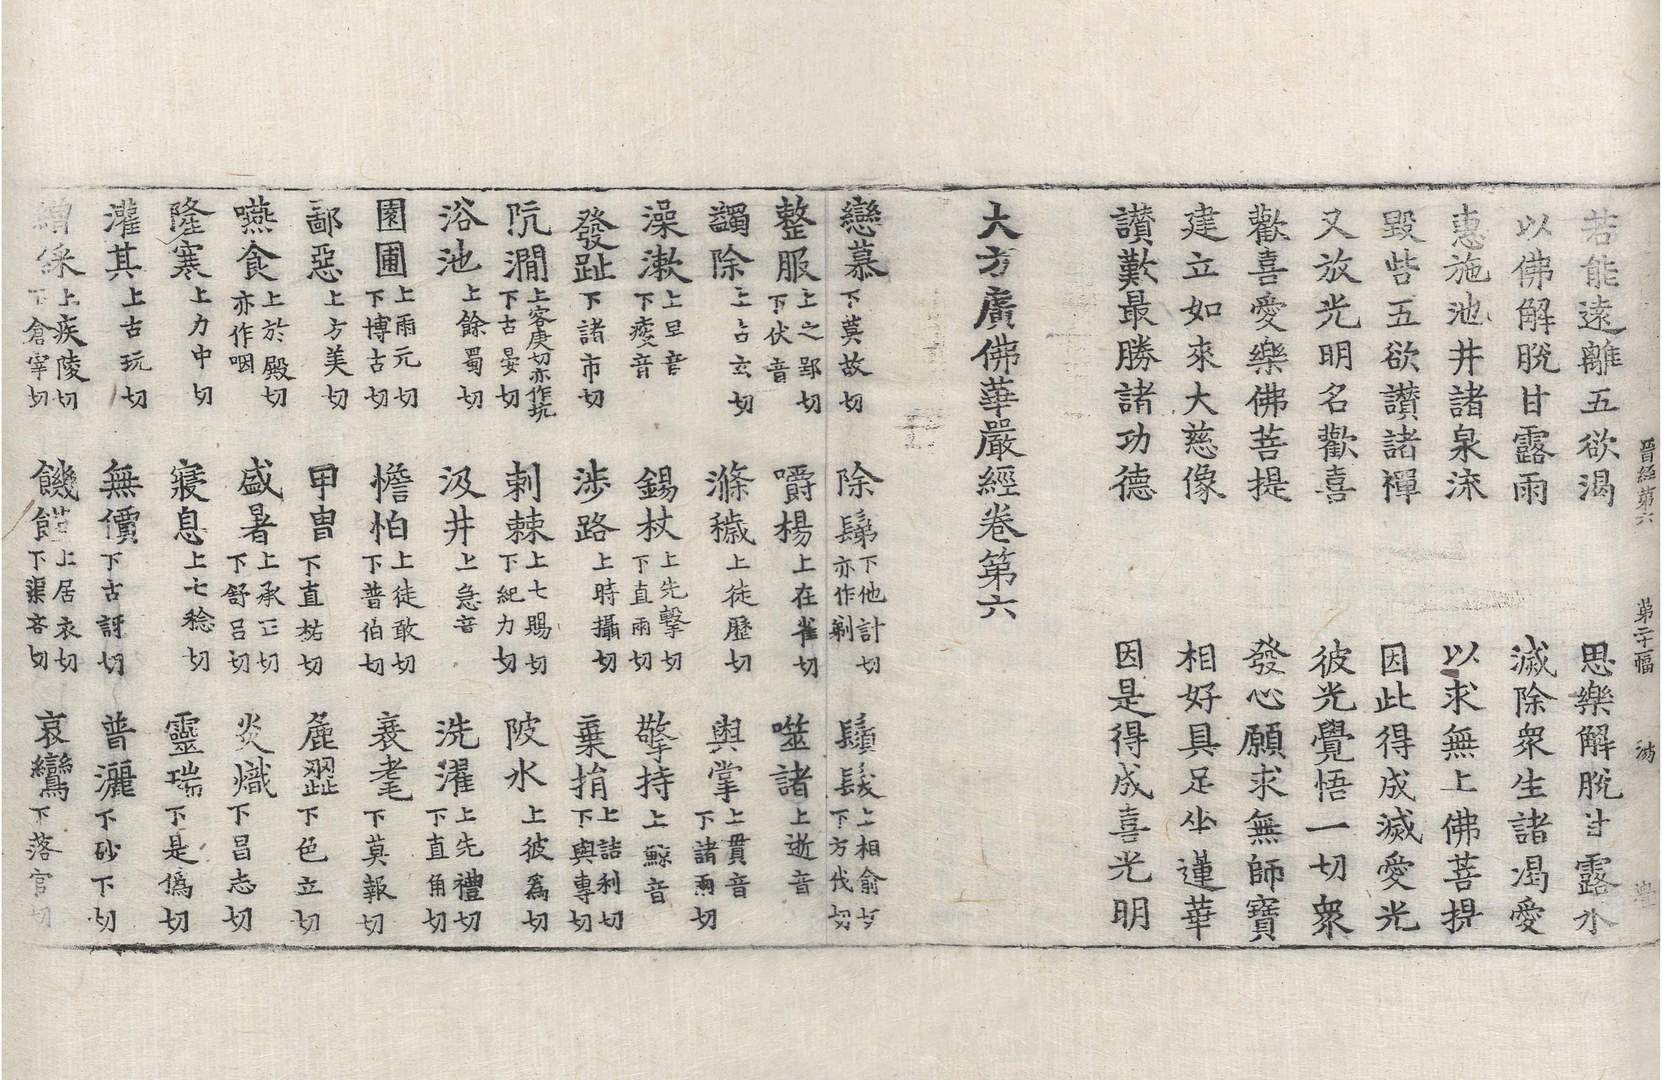 晉經第六 第二十幅 湯
若能遠離五欲渴 思樂解脫甘露水
以佛解脫甘露雨 滅除眾生諸渴愛
惠施池井諸泉流 以求無上佛菩提
毀呰五欲讚諸禪 因此得成滅愛光
又放光明名歡喜 彼光覺悟一切眾
歡喜愛樂佛菩提 發心願求無師寶
建立如來大慈像 相好具足坐蓮華
讚歎最勝諸功德 因是得成喜光明
大方廣佛華嚴經卷第六
戀慕下莫故切 除鬀下他計切亦作剃 鬚髮上相俞切下方伐切
整服上之郢切下伏音 嚼楊上在雀切 噬諸上逝音
蠲除上占玄切 滌穢上徒歷切 盥掌上貫音下諸兩切
澡漱上早音下瘦音 錫杖上先擊切下直兩切 擎持上鯨音
發趾下諸市切 涉路上時攝切 棄捐上詰利切下與專切
阬澗上客庚切亦作坑下古晏切 刺棘上七賜切下紀力切 陂水上彼為切
浴池上餘蜀切 汲井上急音 洗濯上先禮切下直角切
園圃上雨元切下博古切 憺怕上徒敢切下普伯切 衰耄下莫報切
鄙惡上方美切 甲冑下直祐切 麁澀下色立切
嚥食上於殿切亦作咽 盛暑上承正切下舒呂切 炎熾下昌志切
隆寒上力中切 寢息上七稔切 靈瑞下是僞切
灌其上古玩切 無價下古訝切 普灑下砂下切
繒綵上疾陵切下倉宰切 饑饉上居衣切下渠吝切 哀鸞下落官切